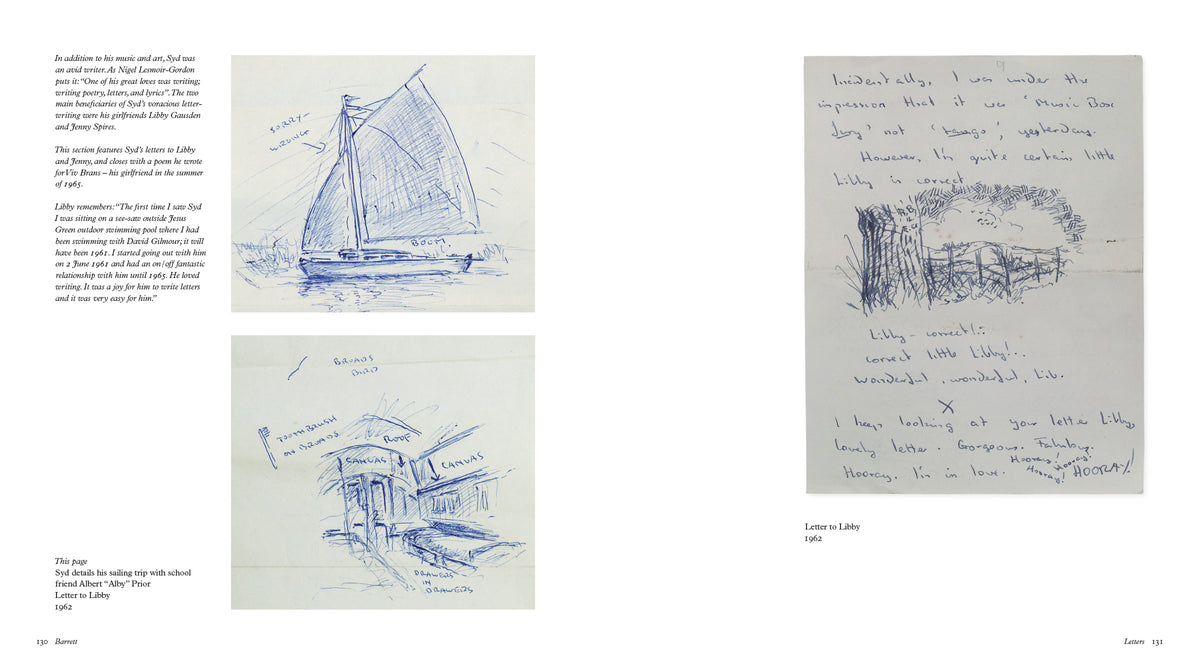 In addition to his music and art, Syd was
an avid writer. As Nigel Lesmoir-Gordon
puts it: “One of his great loves was writing;
writing poetry, letters, and lyrics”. The two
main beneficiaries of Syd’s voracious letter-
writing were his girlfriends Libby Gausden
and Jenny Spires.
This section features Syd’s letters to Libby
and Jenny, and closes with a poem he wrote
for Viv Brans – his girlfriend in the summer
of 1965.
Libby remembers: “The first time I saw Syd
I was sitting on a see-saw outside Jesus
Green outdoor swimming pool where I had
been swimming with David Gilmour; it will
have been 1961. I started going out with him
on 2 June 1961 and had an on/off fantastic
relationship with him until 1965. He loved
writing. It was a joy for him to write letters
and it was very easy for him.”
This page
Syd details his sailing trip with school
friend Albert “Alby” Prior
Letter to Libby
1962
130 Barrett
SORRY –
BOOM.
BROADS
BIRD
TOOTHBRUSH
ON BROADS
ROOF
CANVAS
CANVAS
DRAWERS
IN
DRAWERS
9
Incidentally, I was under the
impression that it was ‘Music Box
not yesterday.
However, I'm quite certain little
Libby is correct
Libby – correct!
correct little Libby!..
Wonderful, wonderful, Lib.
X
I keep looking at your letter Libby,
lovely letter. Gorgeous. Fabulous.
Hooray. I'm in love. Hooray! Hooray! Hooray! HOORAY!
Letter to Libby
1962
Letters 131